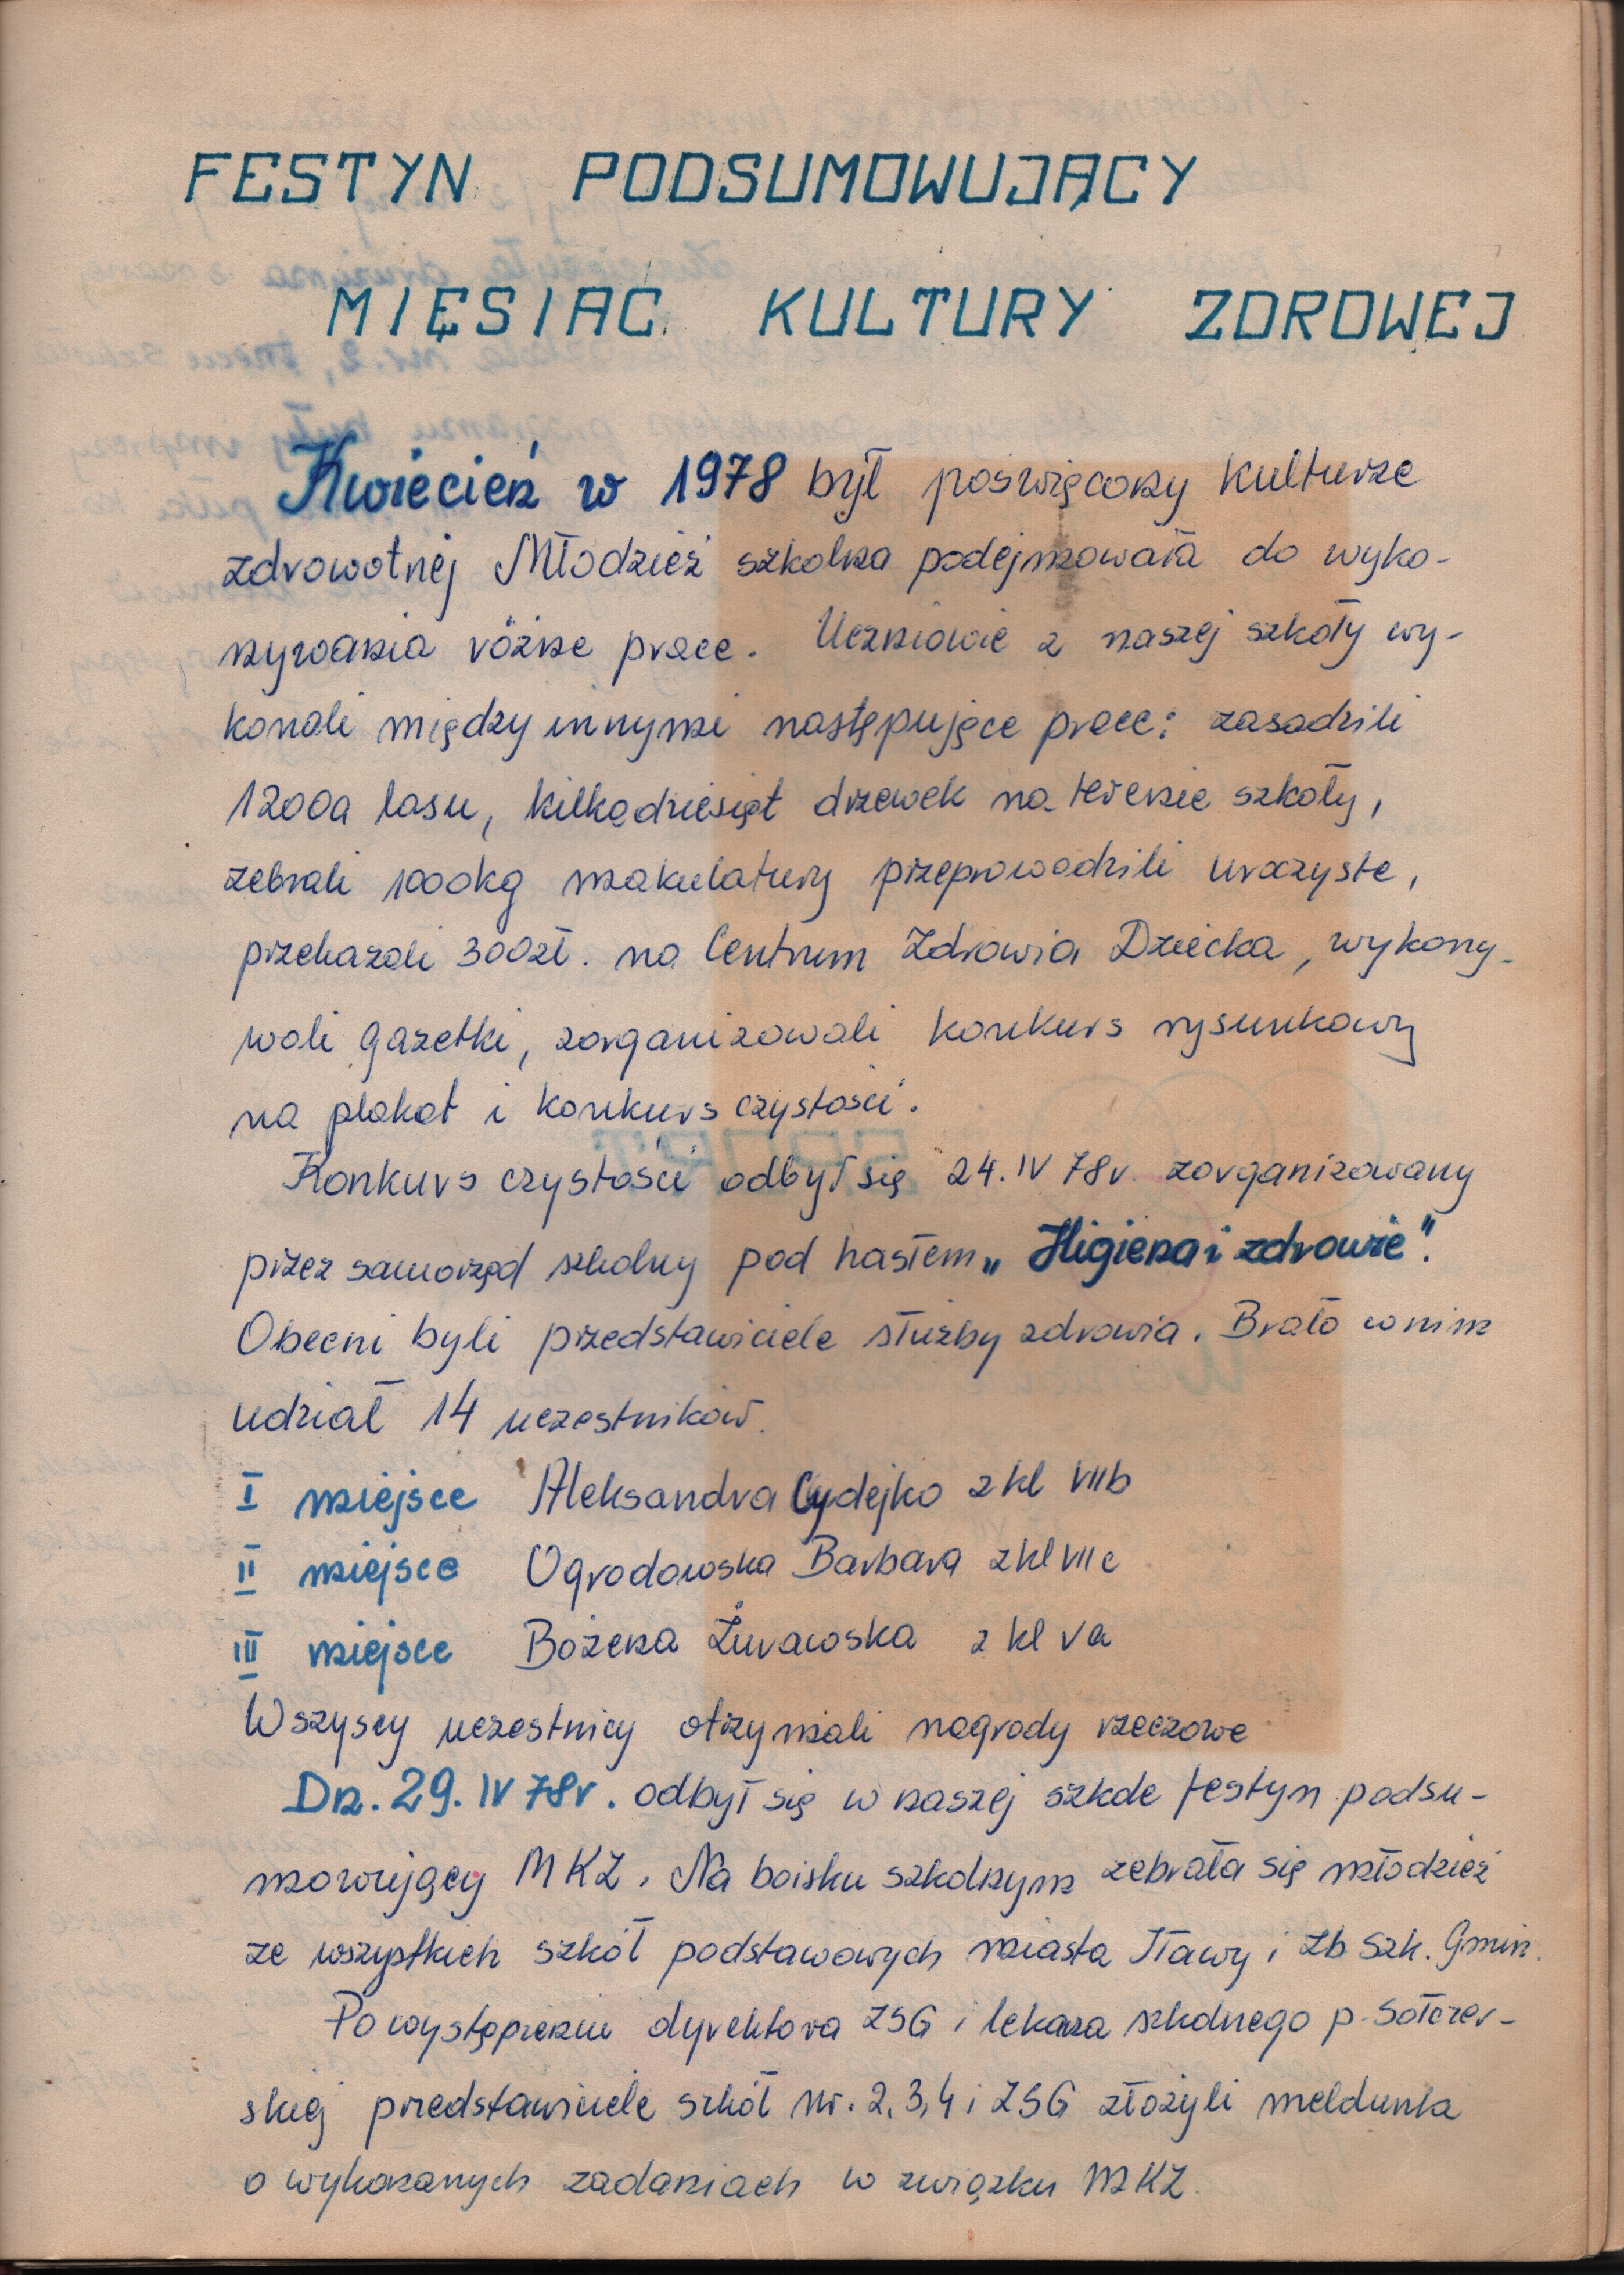 FESTYN PODSUMOWUJĄCY
MIĘSIAC KULTURY ZDROWEJ
Kwiecień w 1978 był poświęcony kulturze
zdrowotnej Młodzież szkolna podejmowała do wyko-
nywania różne prace. Uczniowie z naszej szkoły wy-
konali między innymi następujące prace: zasadzili
1200a lasu, kilkadziesiąt drzewek na terenie szkoły,
zebrali 1000kg makulatury przeprowadzili uroczyste,
przekazali 300zł. na Centrum Zdrowia Dziecka, wykony-
wali gazetki, zorganizowali konkurs rysunkowy
na plakat i konkurs czystości.
Konkurs czystości odbył się 24.IV 78r. zorganizowany
przez samorząd szkolny pod hasłem „Higiena i zdrowie".
Obecni byli przedstawiciele służby zdrowia. Brało w nim
udział 14 uczestników.
I miejsce Aleksandra Cydejko z kl VIIb
II miejsce Ogrodowska Barbara z kl VII c
III miejsce Bożena Żurawska z kl Va
Wszyscy uczestnicy otrzymali nagrody rzeczowe
Dn. 29. IV 78r. odbył się w naszej szkole festyn podsu-
mowujący MKZ. Na boisku szkolnym zebrała się młodzież
ze wszystkich szkół podstawowych miasta Iławy i Zb Szk. Gmin.
Po wystąpieniu dyrektora ZSG i lekarza szkolnego p. Sołczer-
skiej przedstawiciele szkół nr. 2, 3, 4 i ZSG złożyli meldunka
o wykonanych zadaniach w związku MKZ.